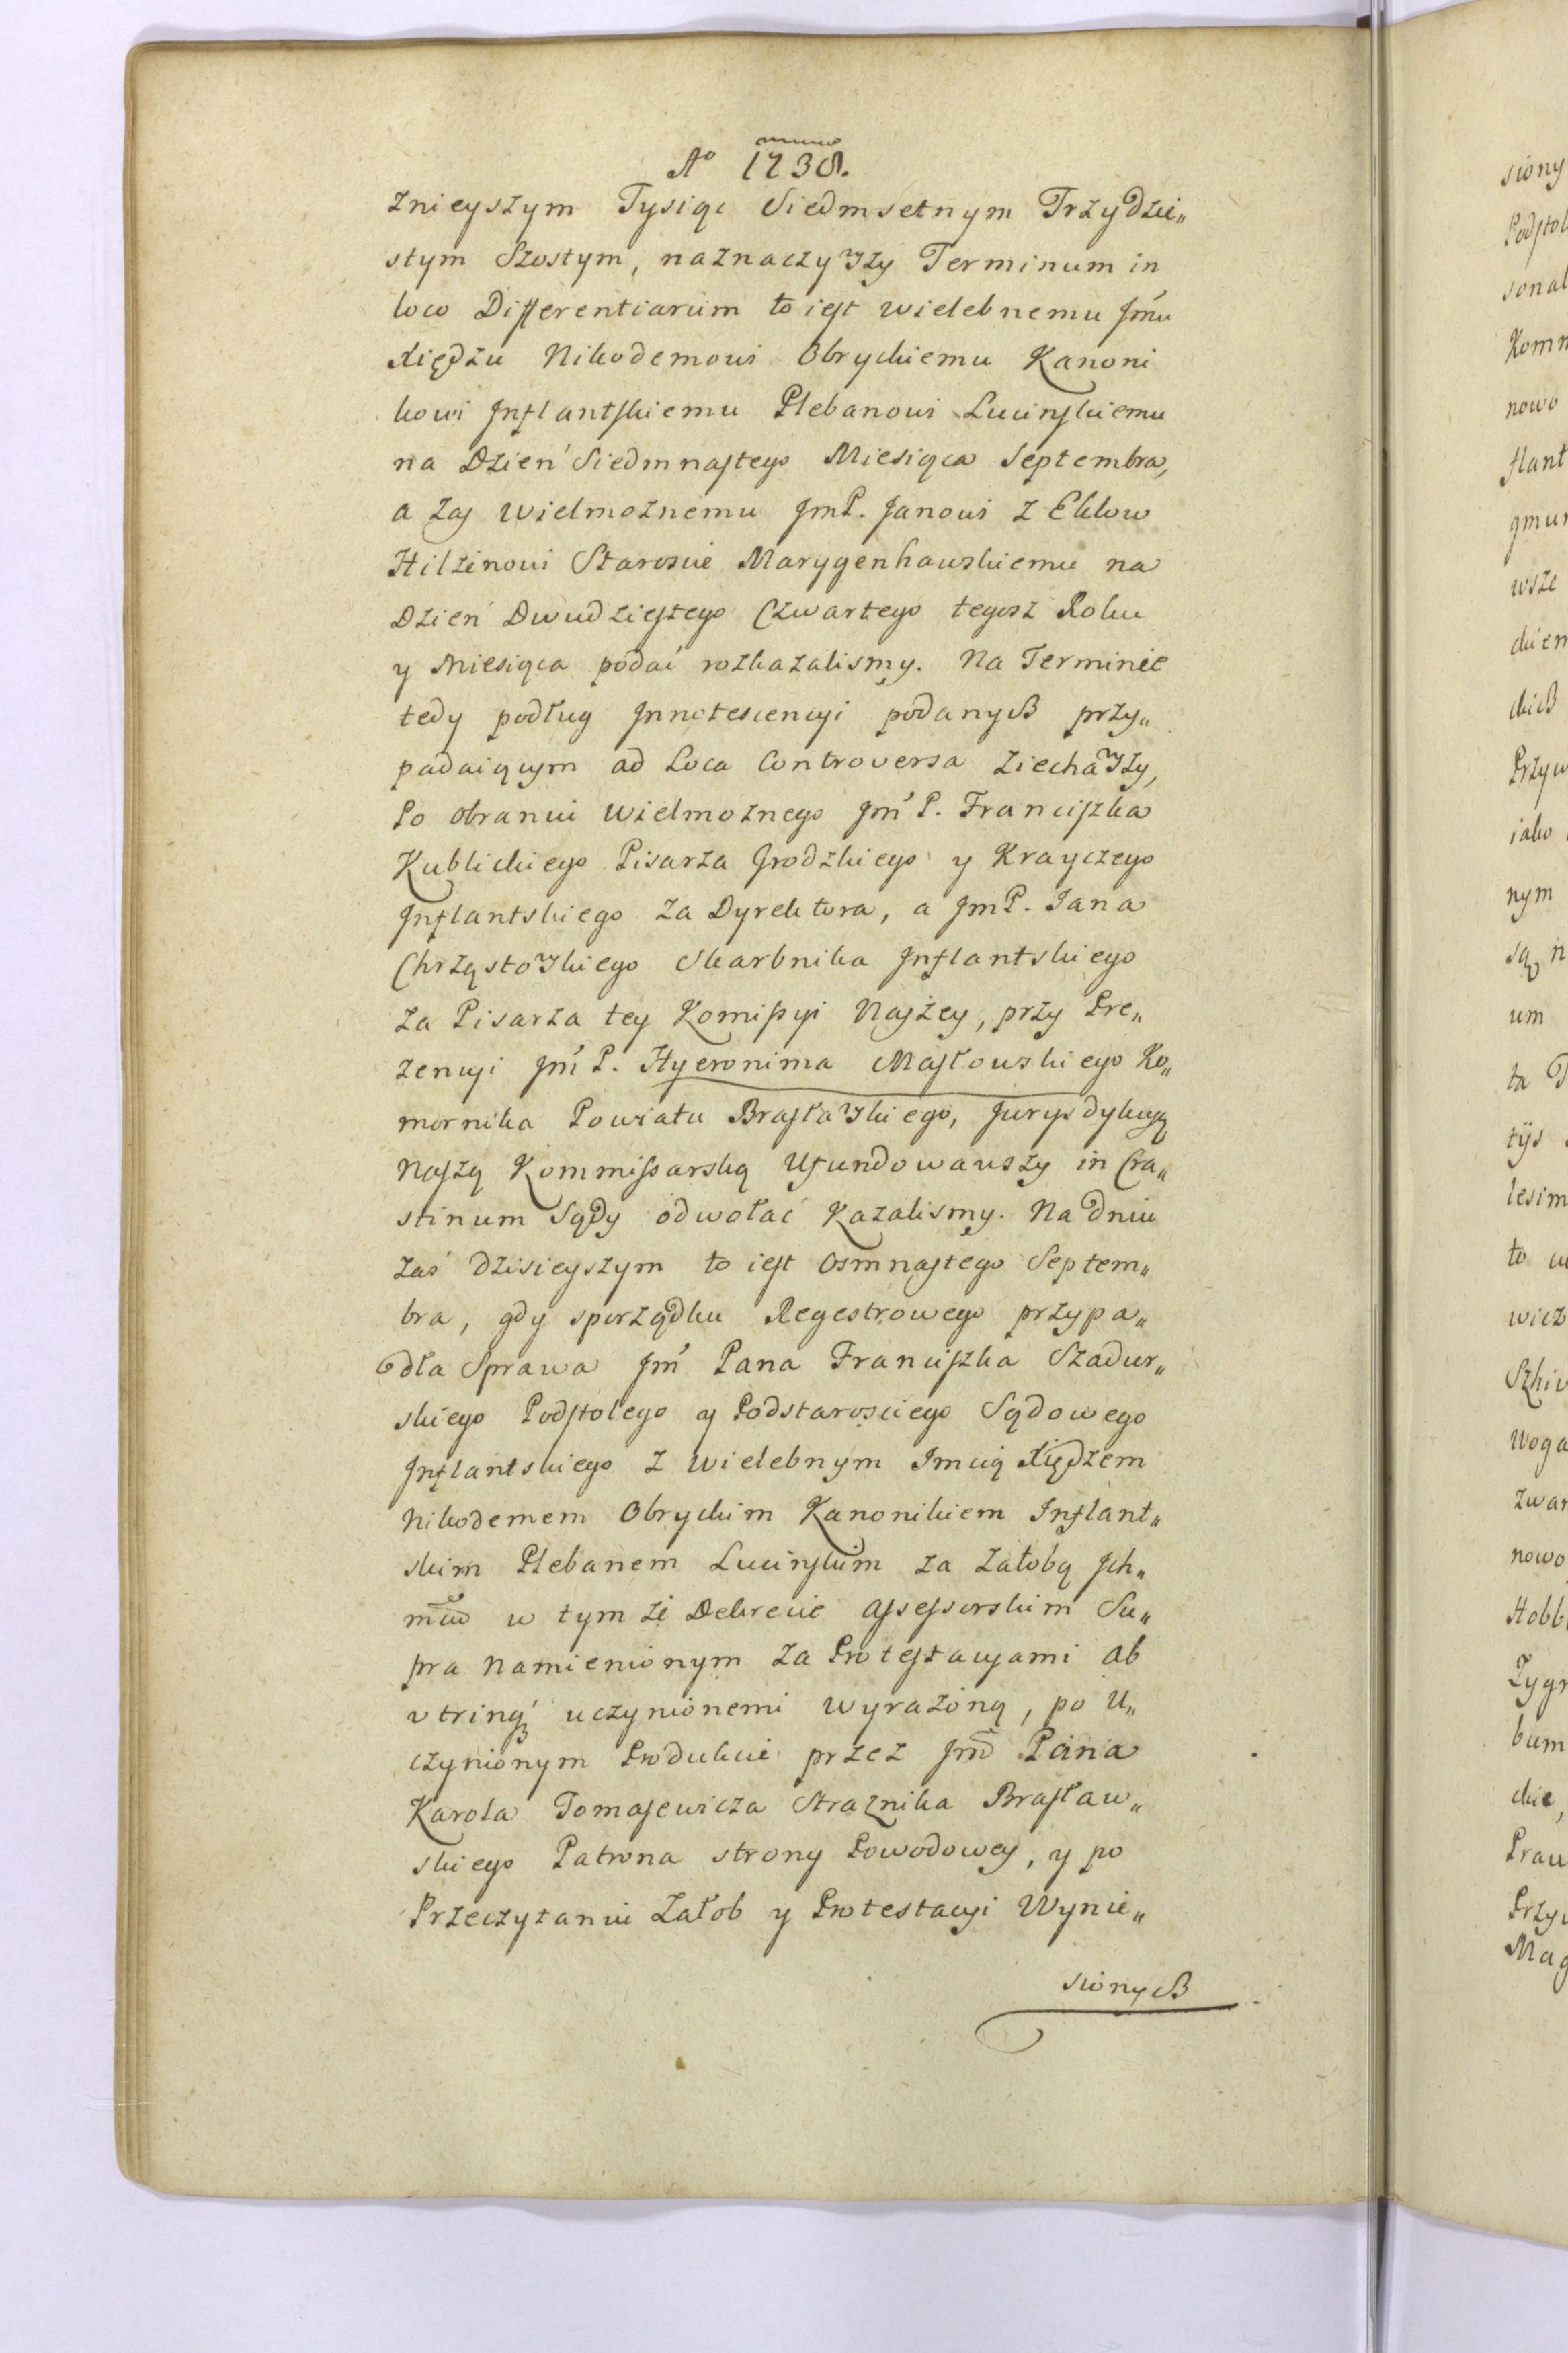 Aº 1738.
znieyszym Tysiąc Siedmsetnym Trzydzie„
stym Szostym, naznaczywszy Terminum in
loco Differentiarum to iest wielebnemu Jm̃u
Xiędzu Nikodemowi Obryckiemu Kanoni
kowi Inflantskiemu Plebanowi Lucinskiemu
na Dzień Siedmnastego Miesiąca Septembra,
a zas Wielmoznemu JmP. Janowi z Eklow
Hilzenowi Staroscie Marygenhauskiemu na
Dzień Dwudziestego Czwartego tegosz Roku
y Miesiąca podać rozkazalismy. Na Terminie
tedy podług Innotescencyi podanych przy„
padaiącym ad Loca Controversa ziechawszy,
Po obraniu Wielmoznego Jm̃ P. Franciszka
Kublickiego Pisarza Grodzkiego y Krayczego
Inflantskiego za Dyrektora, a JmP. Jana
Chrząstowskiego Skarbnika Inflantskiego
za Pisarza tey Komissyi Naszey, przy Pre„
zencyi Jm̃ P. Hyeronima Masłowskiego Ko„
mornika Powiatu Brasławskiego, Jurysdykcyą
Naszą Kommissarską Ufundowawszy in Cra„
stinum Sądy odwołać Kazalismy. Na dniu
zaś dzisieyszym to iest Osmnastego Septem„
bra, gdy sporządku Regestrowego przypa„
dła Sprawa Jm̃ Pana Franciszka Szadur„
skiego Podstolego y Podstarosciego Sądowego
Inflantskiego z Wielebnym Imcią Xiędzem
Nikodemem Obryckim Kanonikiem Inflant„
skim Plebanem Lucinskim za Załobą Ich„
mw̃ w tym ze Dekrecie Assessorskim Su„
pra Namienionym za Protestacyami ab
utrinq́ uczynionemi wyrazoną, po U„
czynionym Produkcie przez Jm̃ Pana
Karola Tomasewicza Straznika Brasław„
skiego Patrona strony Powodowey, y po
Przeczytaniu Załob y Protestacyi Wynie„
sionych
siony
Podstol
sonal
Komm
nowo
flant
gmun
wsze
ckiem
ckich
Przyw
iako
nym
są n
um
ta
tÿs
lesim
to
wicz
Szki
Woga
zwar
nowo
Hobb
Zygr
bum
ckie,
Praw
Przy
Mag